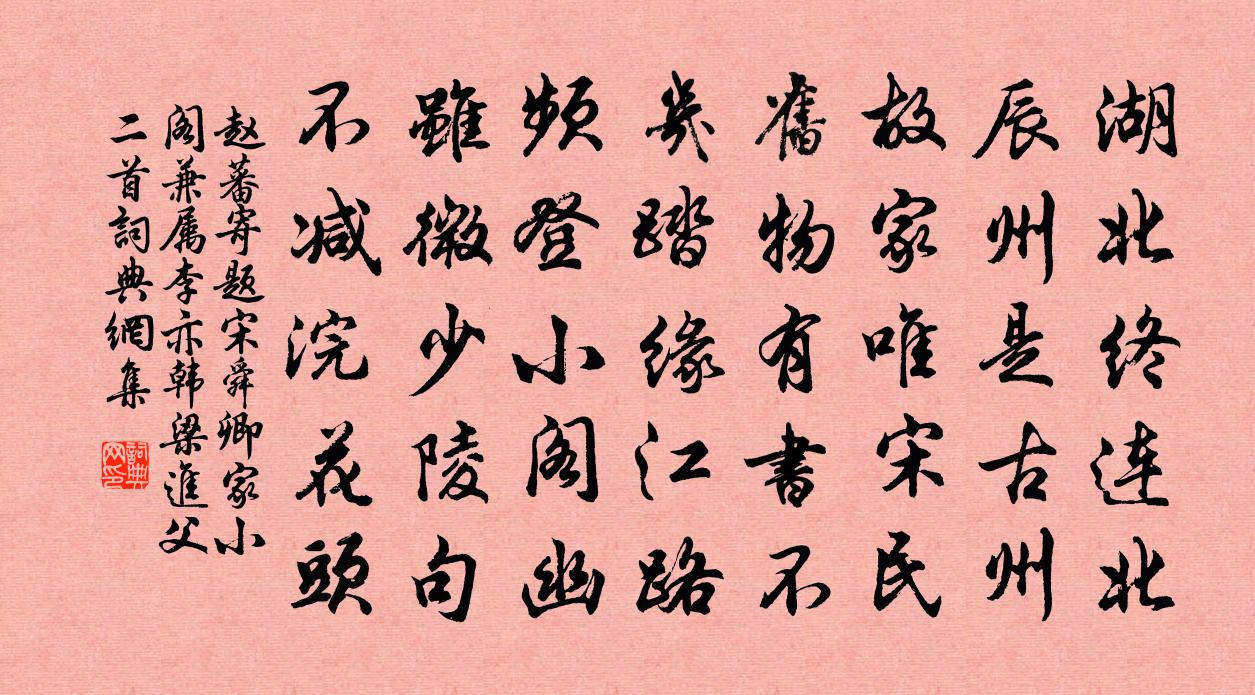 湖北终连北
辰州是古州
故家唯宋民
舊物有書不
幾踏缘江路
頻登小阁幽
雖微少陵句
不减浣花頭
赵蕃寄题宋舜卿家小
阁兼属李亦韩梁進父
二首詞典網集
詞典
网印